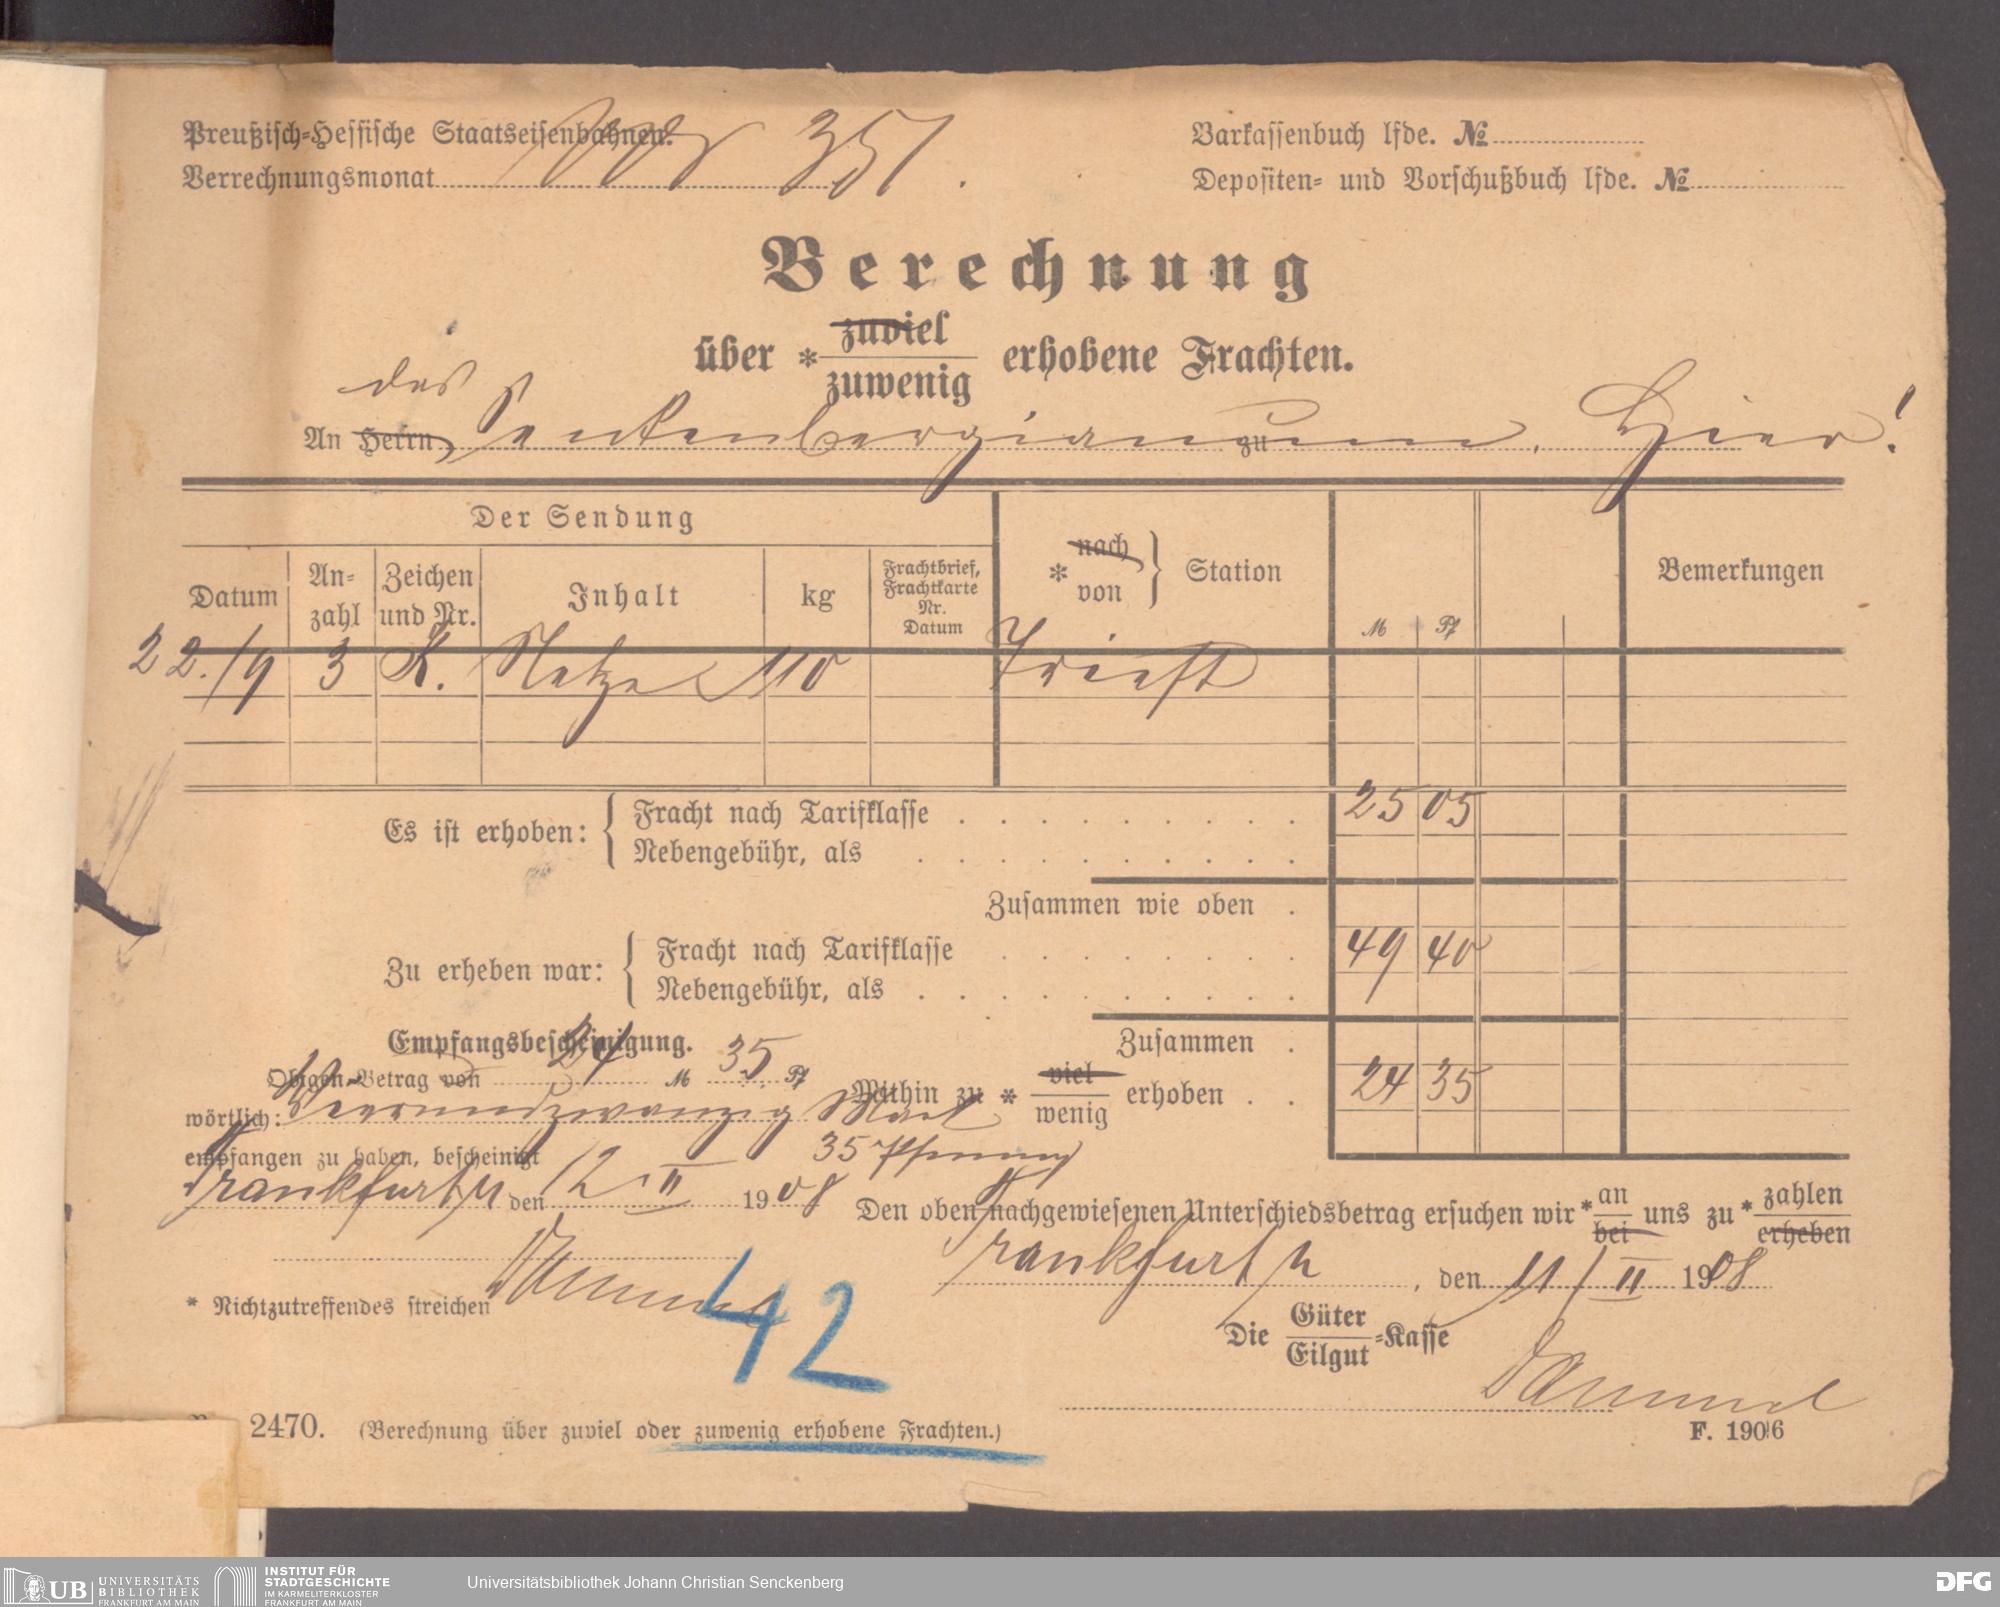 Preußisch-Hessische Staatseisenbahnen.
Verrechnungsmonat 351.
Barkassenbuch lfde. №
Depositen- und Vorschußbuch lfde. №
Berechnung
über * zuviel erhobene Frachten.
zuwenig
das
An Herrn Senkenbergianum zu Hier!
Der Sendung
* nach
von } Station
Bemerkungen
Datum An-zahl Zeichen und Nr. Inhalt kg Frachtbrief, Frachtkarte Nr. Datum M Pf
22./9 3 K. Netze 110 Triest
Es ist erhoben: { Fracht nach Tarifklasse . . . . . . . . . 25 05
Nebengebühr, als . . . . . . . . . .
Zusammen wie oben .
Zu erheben war: { Fracht nach Tarifklasse . . . . . . . . . 49 40
Nebengebühr, als . . . . . . . . . .
Zusammen .
Mithin zu * viel erhoben . . 24 35
wenig
Empfangsbescheinigung.
Obigen Betrag von 24 M 35 Pf
wörtlich: Vierundzwanzig Mark
35 Pfennig
empfangen zu haben, bescheinigt
Frankfurt M den 12. II 1908
* Nichtzutreffendes streichen
Den oben nachgewiesenen Unterschiedsbetrag ersuchen wir * an uns zu * zahlen
bei erheben
Frankfurt M, den 11/II 1908
Die Güter-Kasse
Eilgut
42
2470. (Berechnung über zuviel oder zuwenig erhobene Frachten.)
F. 1906
UB UNIVERSITÄTS
BIBLIOTHEK
FRANKFURT AM MAIN
INSTITUT FÜR
STADTGESCHICHTE
IM KARMELITERKLOSTER
FRANKFURT AM MAIN
Universitätsbibliothek Johann Christian Senckenberg
DFG